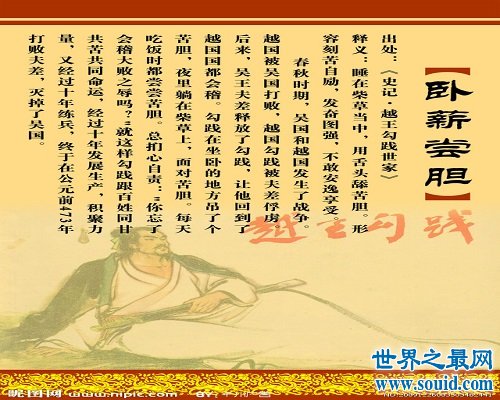 【卧薪尝胆】
越王勾践
出处：《史记·越王勾践世家》
释义：睡在柴草当中，用舌头舔苦胆。形
容刻苦自励，发奋图强，不敢安逸享受。
春秋时期，吴国和越国发生了战争。
越国被吴国打败，越国勾践被夫差俘虏。
后来，吴王夫差释放了勾践，让他回到了
越国国都会稽。勾践在坐卧的地方吊了个
苦胆，夜里躺在柴草上，面对苦胆。每天
吃饭时都尝尝苦胆。总扪心自责：“你忘了
会稽大败之辱吗？”就这样勾践跟百姓同甘
共苦共同命运，经过十年发展生产，积聚力
量，又经过十年练兵，终于在公元前473年
打败夫差，灭掉了吴国。
世界之最网
www.souid.com
昵图网 www.nipic.com